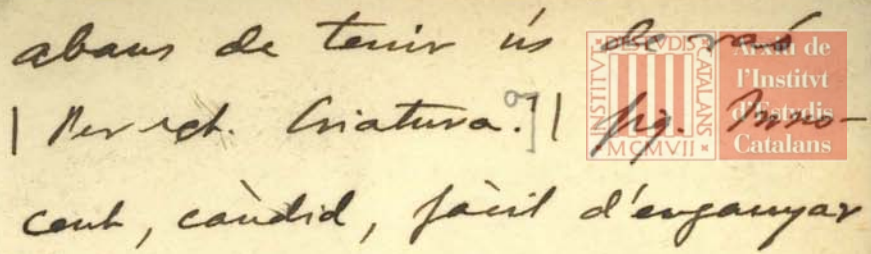 abans de tenir ús de raó
| Per ext. Criatura.] | fig. Inno-
cent, càndid, fàcil d'enganyar
INSTITVT D'ESTVDIS CATALANS MCMVII
Arxiu de
l'Institvt
d'Estvdis
Catalans